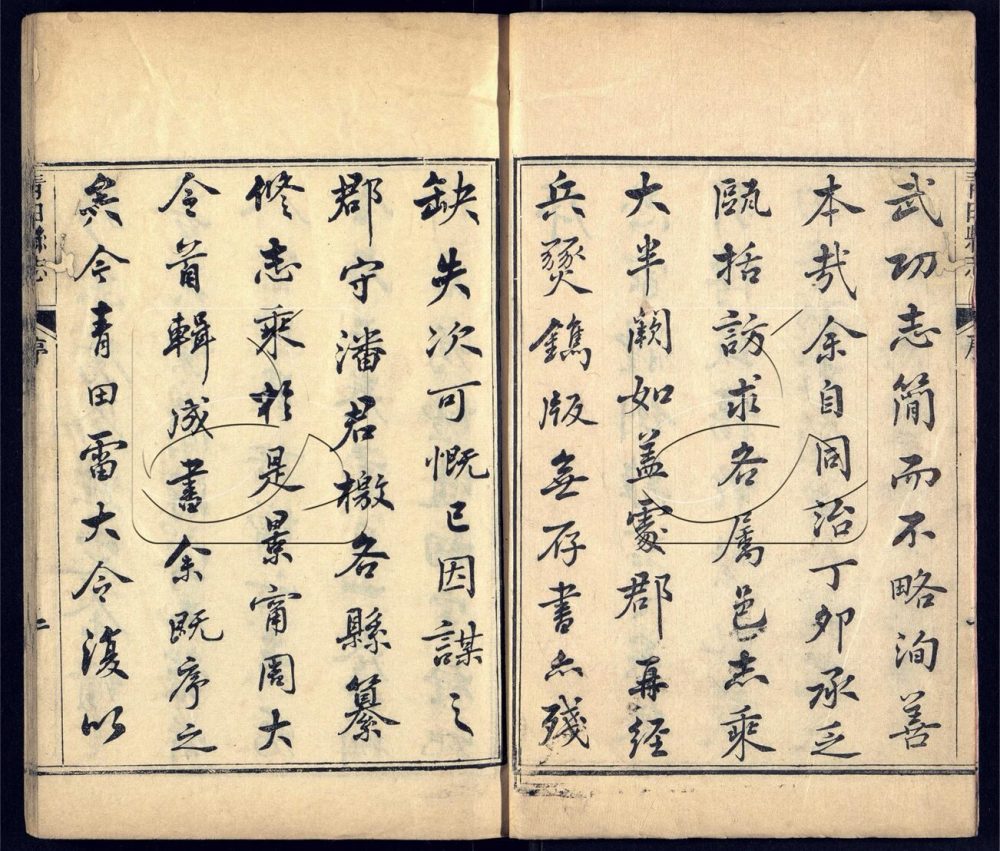 青田縣志
序
武功志簡而不略洵善
本哉余自同治丁卯承乏
甌括訪求各屬邑志乘
大半闕如蓋處郡再經
兵燹鐫版無存書亦殘
缺失次可慨已因謀之
郡守潘君檄各縣纂
修志乘於是景甯周大
令首輯成書余既序之
矣今青田雷大令復以
青田縣志
序
二